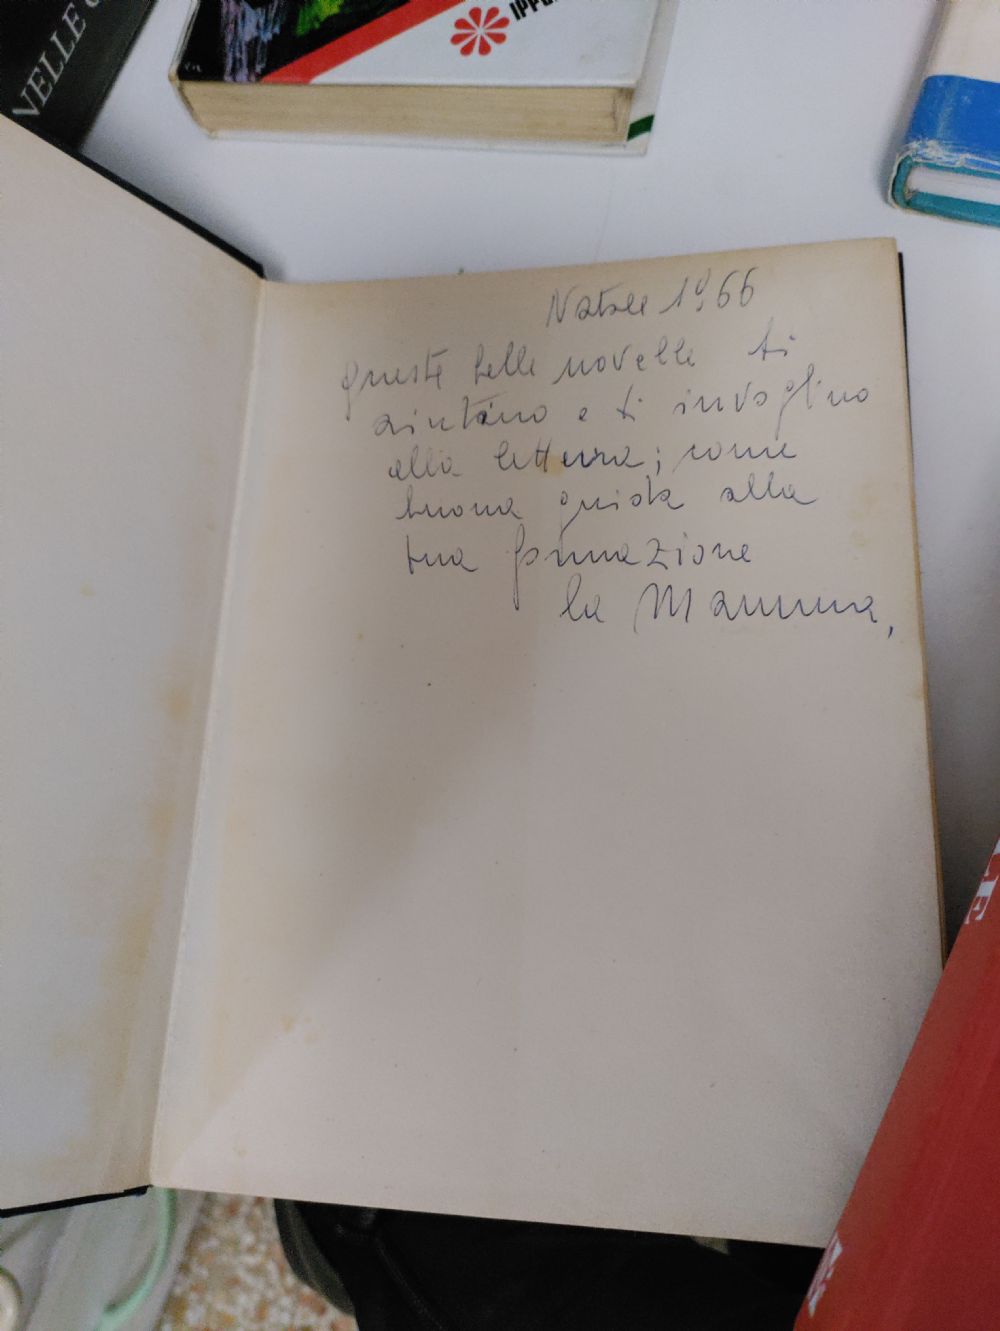 NELLE
IPP
Natale 1966
Queste belle novelle ti
aiutano e ti invoglino
alla lettura; come
buona guida alla
tua formazione
la Mamma,